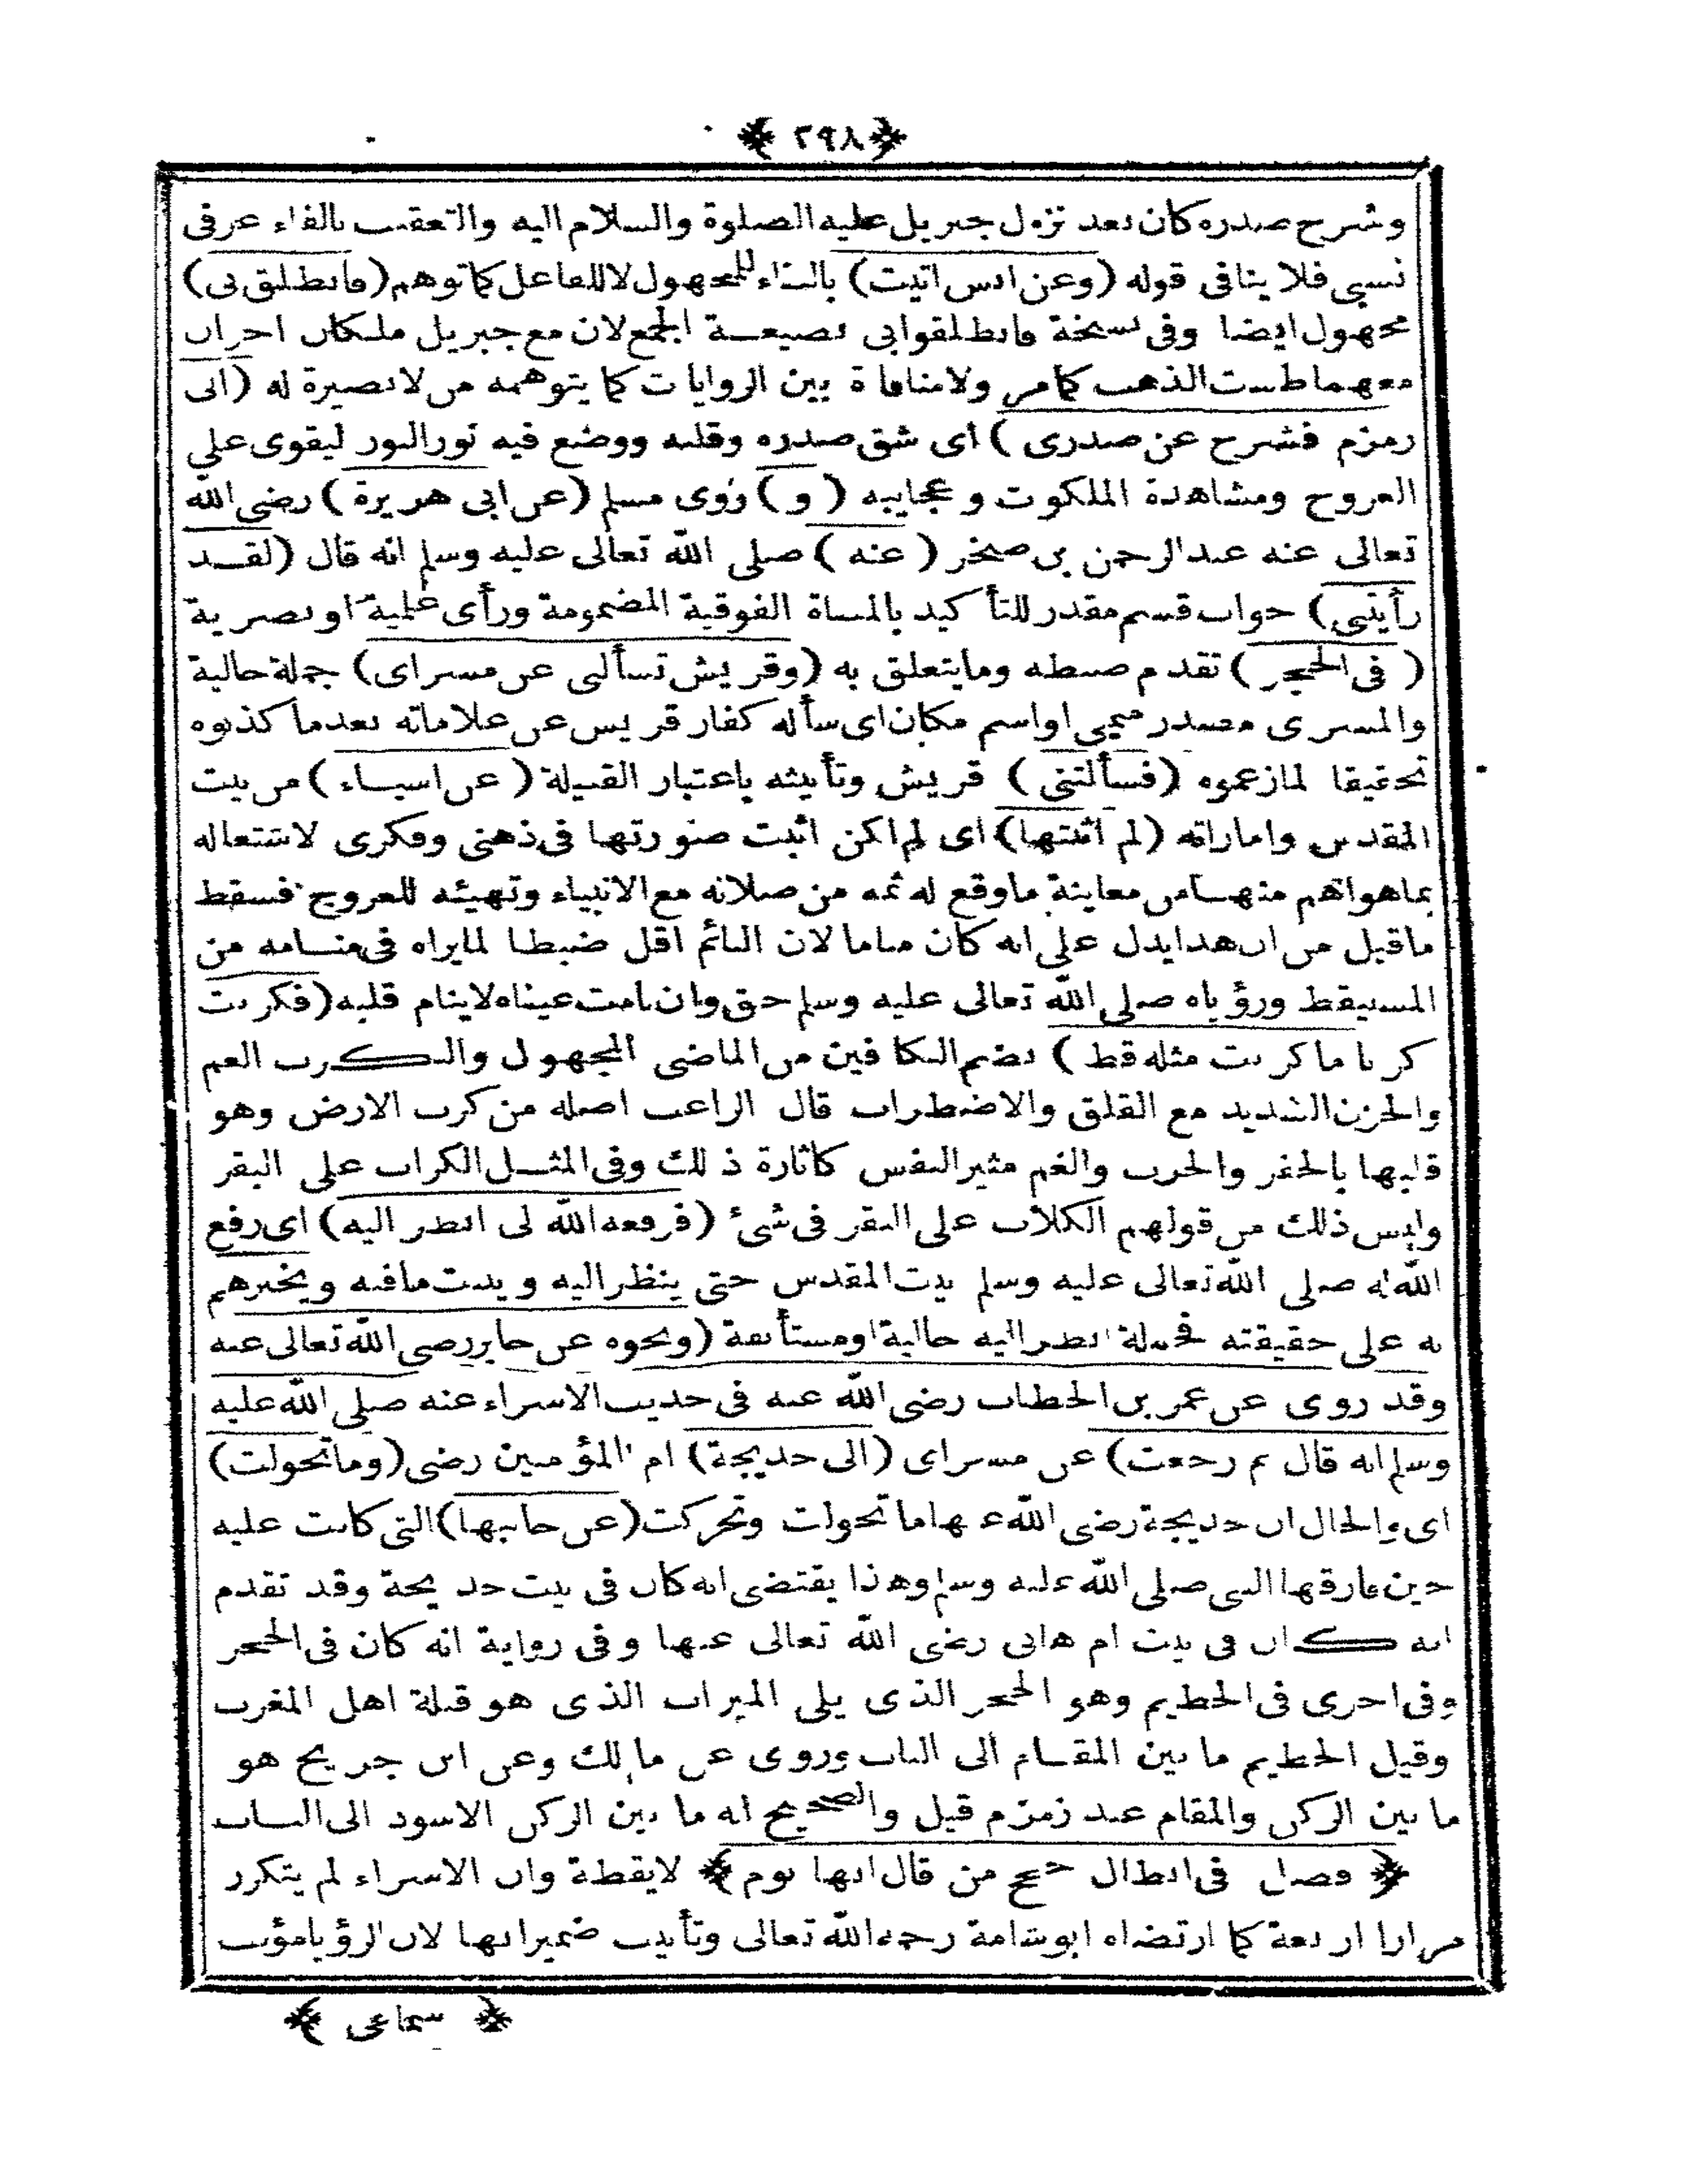 ﴿ ٢٩٨ ﴾
وشرح صدره كان بعد نزول جبريل عليه الصلوة والسلام اليه والتعقيب بالفاء عرفى
نسبى فلا ينافى قوله (وعن انس اتيت) بالبناء للمجهول لا للفاعل كما توهم (فانطلق بى)
مجهول ايضا وفى نسخة فانطلقوا بى بصيغة الجمع لان مع جبريل ملكان اخران
معهما طست الذهب كما مر ولا منافاة بين الروايات كما يتوهمه من لا بصيرة له (الى
زمزم فشرح عن صدرى) اى شق صدره وقلبه ووضع فيه نور النور ليقوى على
العروج ومشاهدة الملكوت وعجايبه (و) روى مسلم (عن ابى هريرة) رضى الله
تعالى عنه عبد الرحمن بن صخر (عنه) صلى الله تعالى عليه وسلم انه قال (لقد
رأيتنى) جواب قسم مقدر للتأكيد بالمثناة الفوقية المضمومة ورأى علمية او بصرية
(فى الحجر) تقدم ضبطه وما يتعلق به (وقريش تسألنى عن مسراى) جملة حالية
والمسرى مصدر ميمى او اسم مكان اى سأله كفار قريش عن علاماته بعدما كذبوه
تحقيقا لما زعموه (فسألتنى) قريش وتأنيثه باعتبار القبيلة (عن اشياء) من بيت
المقدس واماراته (لم اثبتها) اى لم اكن اثبت صورتها فى ذهنى وفكرى لاشتغاله
بما هو اهم منها من معاينة ما وقع له ثمه من صلاته مع الانبياء وتهيئه للعروج فسقط
ما قيل من ان هذا يدل على انه كان مناما لان النائم اقل ضبطا لما يراه فى منامه من
المستيقظ ورؤياه صلى الله تعالى عليه وسلم حق وان نامت عيناه لا ينام قلبه (فكربت
كربا ما كربت مثله قط) بضم الكافين من الماضى المجهول والكرب الغم
والحزن الشديد مع القلق والاضطراب قال الراغب اصله من كرب الارض وهو
قلبها بالحفر والحرب والغم مثير النفس كاثارة ذلك وفى المثل الكراب على البقر
وليس ذلك من قولهم الكلاب على البقر فى شئ (فرفعه الله لى انظر اليه) اى رفع
الله له صلى الله تعالى عليه وسلم بيت المقدس حتى ينظر اليه ويثبت ما فيه ويخبرهم
به على حقيقته فجملة انظر اليه حالية او مستأنفة (ونحوه عن جابر رضى الله تعالى عنه
وقد روى عن عمر بن الخطاب رضى الله عنه فى حديث الاسراء عنه صلى الله عليه
وسلم انه قال ثم رجعت) عن مسراى (الى خديجة) ام المؤمنين رضى (وما تحولت)
اى والحال ان خديجة رضى الله عنها ما تحولت وتحركت (عن جانبها) التى كانت عليه
حين فارقها النبى صلى الله عليه وسلم وهذا يقتضى انه كان فى بيت خديجة وقد تقدم
انه كان فى بيت ام هانى رضى الله تعالى عنها وفى رواية انه كان فى الحجر
وفى اخرى فى الحطيم وهو الحجر الذى يلى الميزاب الذى هو قبلة اهل المغرب
وقيل الحطيم ما بين المقام الى الباب وروى عن مالك وعن ابن جريج هو
ما بين الركن والمقام عند زمزم قيل والصحيح انه ما بين الركن الاسود الى الباب
﴿ فصل فى ابطال حجج من قال انها نوم ﴾ لا يقظة وان الاسراء لم يتكرر
مرارا اربعة كما ارتضاه ابو شامة رحمه الله تعالى وتأنيث ضمير انها لان الرؤيا مؤنث
﴿ سماعى ﴾